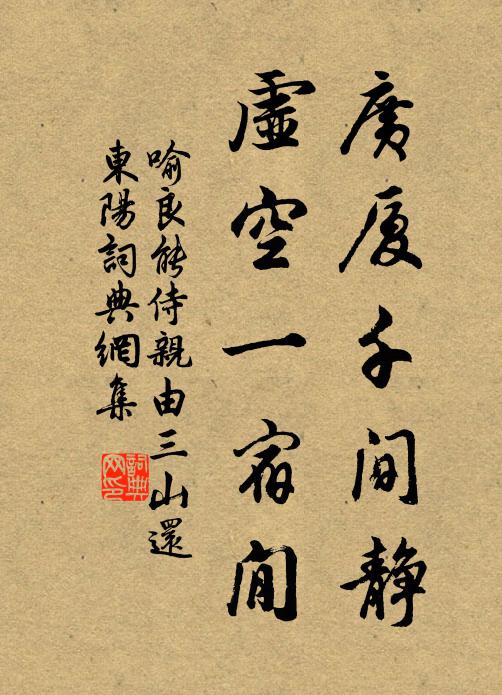 廣厦千間静
虛空一宿閒
喻良能侍親由三山還
東陽詞典網集
詞典
网印